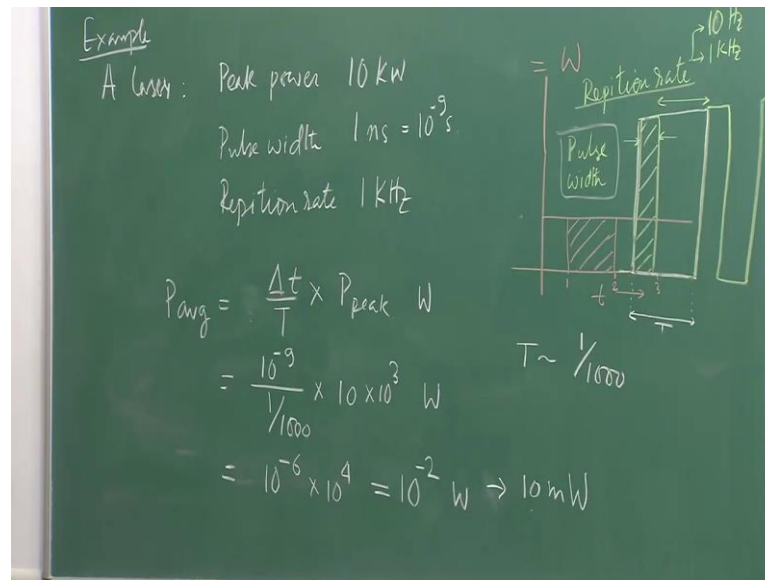 Example
A laser : Peak power 10 KW
Pulse width 1 ns = 10⁻⁹ s
Repition rate 1 KHz
Pavg = Δt/T × Ppeak W
= 10⁻⁹/(1/1000) × 10 × 10³ W
= 10⁻⁶ × 10⁴ = 10⁻² W → 10 mW
= W
Repition rate
→ 10 Hz
→ 1 KHz
Pulse
width
1 2 3
t →
T
T ~ 1/1000